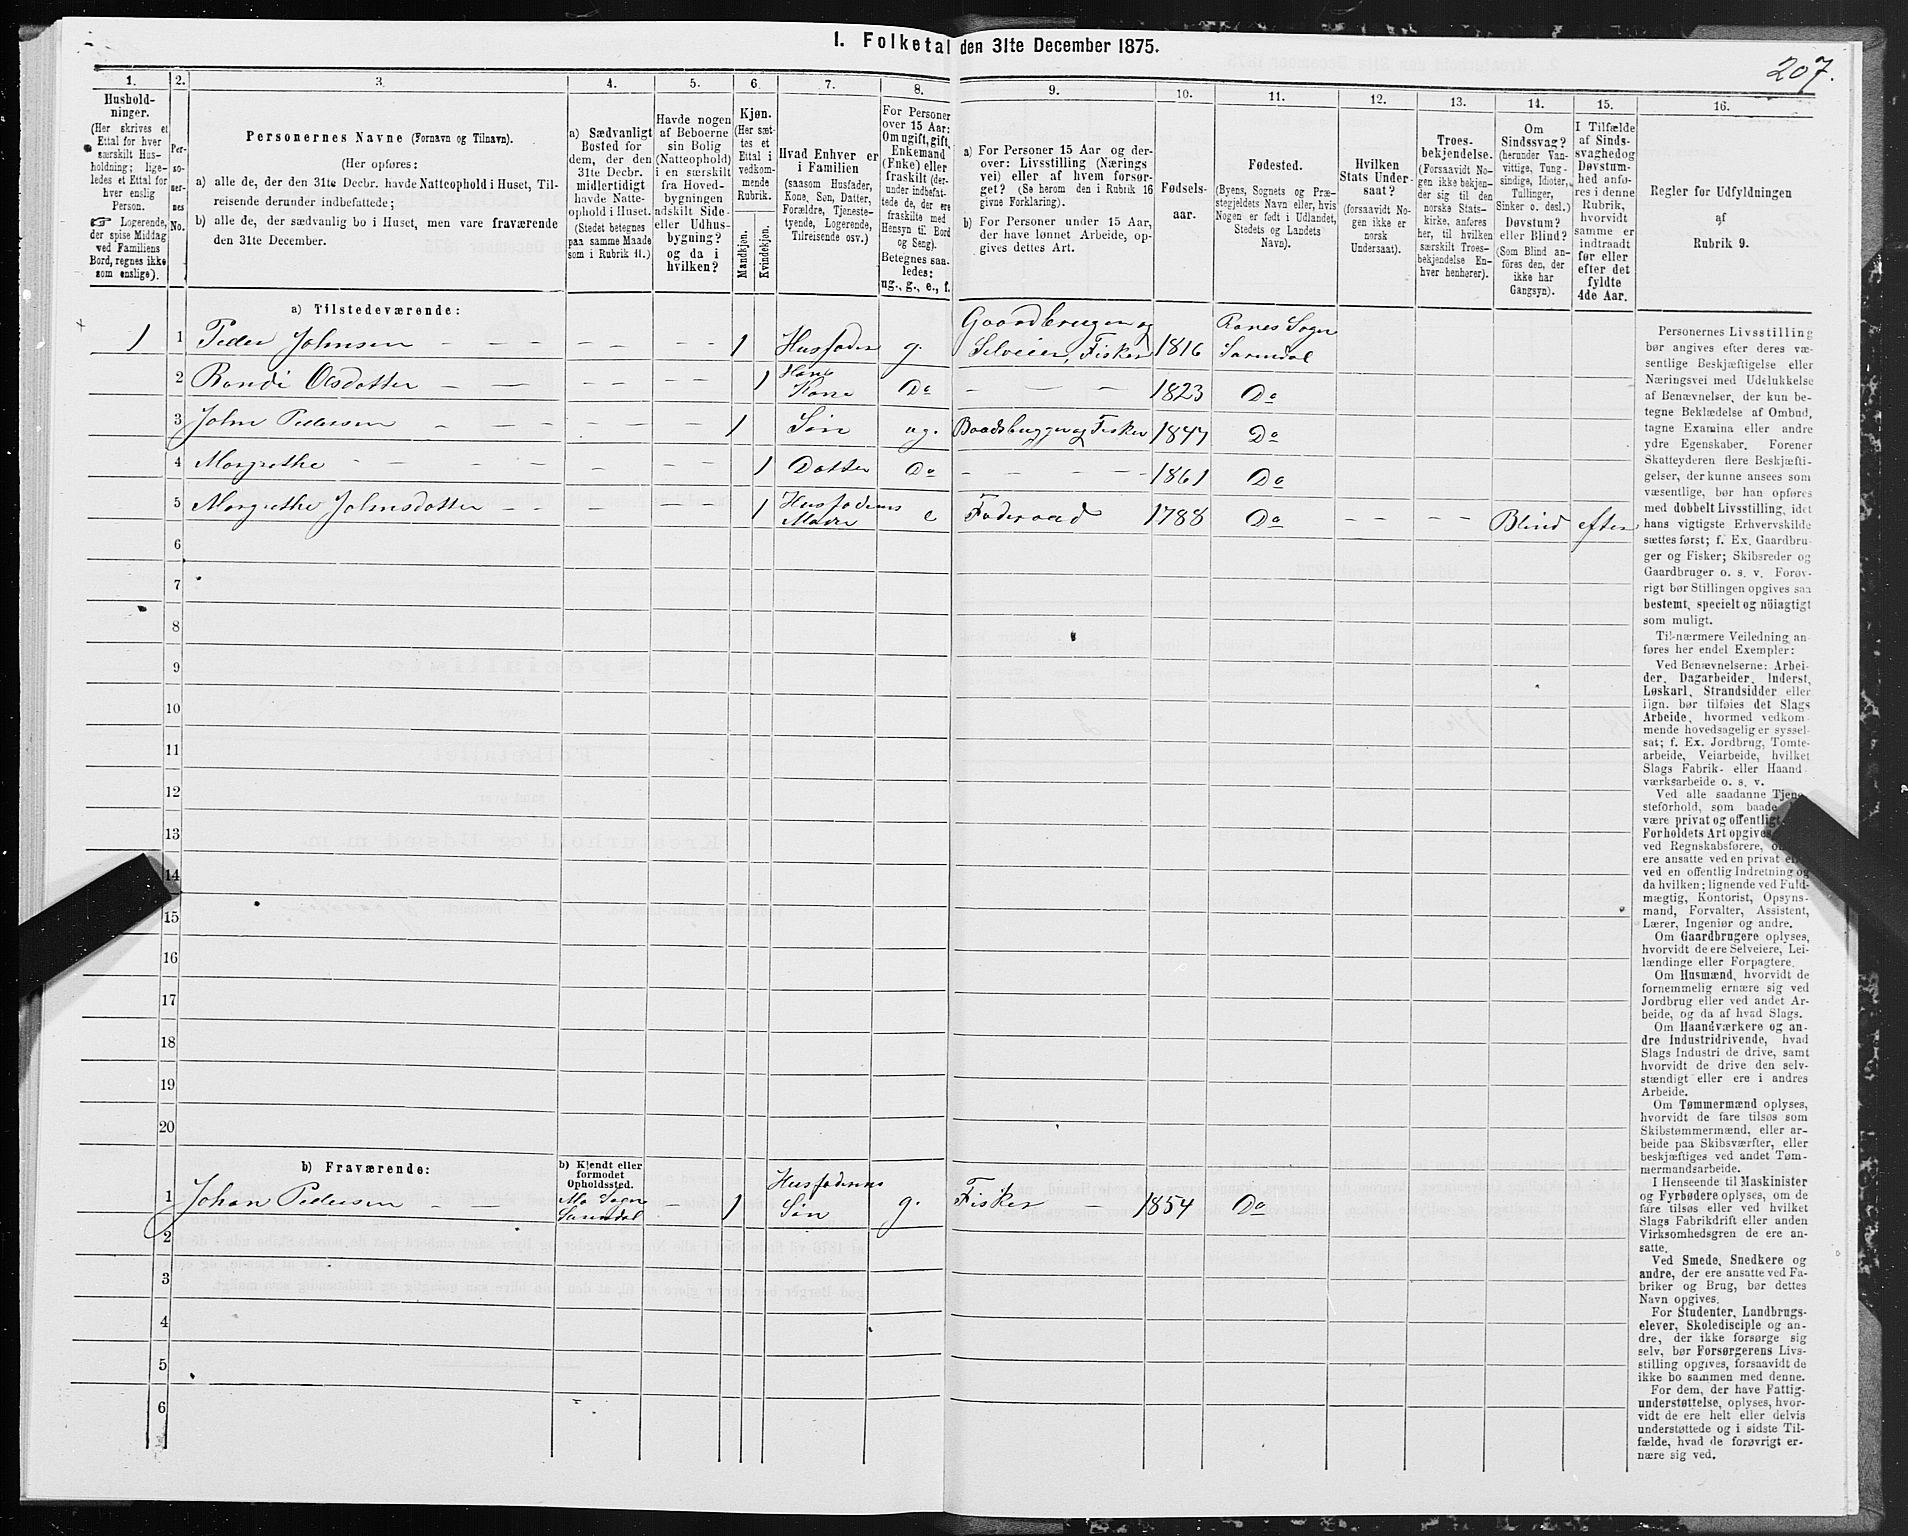 I. Folketal den 31te December 1875.
207.
1.
2.
3.
4.
5.
6.
7.
8.
9.
10.
11.
12.
13.
14.
15.
16.
Hushold-
ninger.
(Her skrives et
Ettal for hver
særskilt Hus-
holdning; lige-
ledes et Ettal for
hver enslig
Person.
☞ Logerende,
der spise Middag
ved Familiens
Bord, regnes ikke
som enslige).
Per-
so-
ner-
nes
No.
Personernes Navne (Fornavn og Tilnavn).
(Her opføres:
a) alle de, der den 31te Decbr. havde Natteophold i Huset, Til-
reisende derunder indbefattede;
b) alle de, der sædvanlig bo i Huset, men vare fraværende
den 31te December.
a) Sædvanligt
Bosted for
dem, der den
31te Decbr.
midlertidigt
havde Natte-
ophold i Huset.
(Stedet betegnes
paa samme Maade
som i Rubrik 11.)
Havde nogen
af Beboerne
sin Bolig
(Natteophold)
i en særskilt
fra Hoved-
bygningen
adskilt Side-
eller Udhus-
bygning?
og da i
hvilken?
Kjøn.
(Her sæt-
tes et
Ettal i
vedkom-
mende
Rubrik.
Mandkjøn.
Kvindekjøn.
Hvad Enhver er
i Familien
(saasom Husfader,
Kone, Søn, Datter,
Forældre, Tjeneste-
tyende, Logerende,
Tilreisende osv.)
For Personer
over 15 Aar:
Om ugift, gift,
Enkemand
(Enke) eller
fraskilt (der-
under indbefat-
tede de, der ere
fraskilte med
Hensyn til Bord
og Seng).
Betegnes saa-
ledes:
ug., g., e., f.
a) For Personer 15 Aar og der-
over: Livsstilling (Nærings
vei) eller af hvem forsør-
get? (Se herom den i Rubrik 16
givne Forklaring).
b) For Personer under 15 Aar,
der have lønnet Arbeide, op-
gives dettes Art.
Fødsels-
aar.
Fødested.
(Byens, Sognets og Præ-
stegjeldets Navn eller, hvis
Nogen er født i Udlandet,
Stedets og Landets
Navn).
Hvilken
Stats Under-
saat?
(forsaavidt No-
gen ikke er
norsk
Undersaat).
Troes-
bekjendelse.
(Forsaavidt No-
gen ikke bekjen-
der sig til den
norske Stats-
kirke, anføres
her, til hvilken
særskilt Troes-
bekjendelse En-
hver henhører).
Om
Sindssvag?
(herunder Van-
vittige, Tung-
sindige, Idioter,
Tullinger,
Sinker o. desl.)
Døvstum?
eller Blind?
(Som Blind an-
føres den, der
ikke har
Gangsyn).
I Tilfælde
af Sinds-
svaghed og
Døvstum-
hed anfø-
res i denne
Rubrik,
hvorvidt
samme er
indtraadt
før eller
efter det
fyldte
4de Aar.
Regler for Udfyldningen
af
Rubrik 9.
a) Tilstedeværende:
1 1 Peder Johnsen 1 Husfader g. Gaardbruger og Selveier, Fisker 1816 Ranes Sogn Surendal
2 Randi Olsdatter 1 Hans Kone Do 1823 Do
3 John Pedersen 1 Søn ug. Baadsbygger og Fisker 1847 Do
4 Margrethe 1 Datter Do 1861 Do
5 Margrethe Johnsdatter 1 Husfaderens Moder e Føderaad 1788 Do Blind efter
6
7
8
9
10
11
12
13
14
15
16
17
18
19
20
b) Fraværende:
b) Kjendt eller
formodet
Opholdssted.
1 Johan Pedersen Mo Sogn Surendal 1 Husfaderens Søn g. Fisker 1854 Do
2
3
4
5
6
Personernes Livsstilling
bør angives efter deres væ-
sentlige Beskjæftigelse eller
Næringsvei med Udelukkelse
af Benævnelser, der kun be-
tegne Beklædelse af Ombud,
tagne Examina eller andre
ydre Egenskaber. Forener
Skatteyderen flere Beskjæfti-
gelser, der kunne ansees som
væsentlige, bør han opføres
med dobbelt Livsstilling, idet
hans vigtigste Erhvervskilde
sættes først; f. Ex. Gaardbru-
ger og Fisker; Skibsreder og
Gaardbruger o. s. v. Forøv-
rigt bør Stillingen opgives saa
bestemt, specielt og nöiagtigt
som muligt.
Til nærmere Veiledning an-
føres her endel Exempler:
Ved Benævnelserne: Arbei-
der, Dagarbeider, Inderst,
Løskarl, Strandsidder eller
lign. bør tilføies det Slags
Arbeide, hvormed vedkom-
mende hovedsagelig er syssel-
sat; f. Ex. Jordbrug, Tomte-
arbeide, Veiarbeide, hvilket
Slags Fabrik- eller Haand-
værksarbeide o. s. v.
Ved alle saadanne Tjene-
steforhold, som baade
være privat og offentligt,
Forholdets Art opgives,
ved Regnskabsførere,
ere ansatte ved en privat
ved en offentlig Indretning og
da hvilken; lignende ved Fuld-
mægtig, Kontorist, Opsyns-
mand, Forvalter, Assistent,
Lærer, Ingeniør og andre.
Om Gaardbrugere oplyses,
hvorvidt de ere Selveiere, Lei-
lændinge eller Forpagtere.
Om Husmænd, hvorvidt de
fornemmelig ernære sig ved
Jordbrug eller ved andet Ar-
beide, og da af hvad Slags.
Om Haandværkere og an-
dre Industridrivende, hvad
Slags Industri de drive, samt
hvorvidt de drive den selv-
stændigt eller ere i andres
Arbeide.
Om Tømmermænd oplyses,
hvorvidt de fare tilsøs som
Skibstømmermænd, eller ar-
beide paa Skibsværfter, eller
beskjæftiges ved andet Tøm-
mermandsarbeide.
I Henseende til Maskinister
og Fyrbødere oplyses, om de
fare tilsøs eller ved hvilket
Slags Fabrikdrift eller anden
Virksomhedsgren de ere an-
satte.
Ved Smede, Snedkere og
andre, der ere ansatte ved Fa-
briker og Brug, bør dettes
Navn opgives.
For Studenter, Landbrugs-
elever, Skoledisciple og an-
dre, der ikke forsørge sig
selv, bør Forsørgerens Livs-
stilling opgives, forsaavidt de
ikke bo sammen med denne.
For dem, der have Fattig-
understøttelse, oplyses, hvor-
vidt de ere helt eller delvis
understøttede og i sidste Til-
fælde, hvad de forøvrigt er-
nære sig ved.